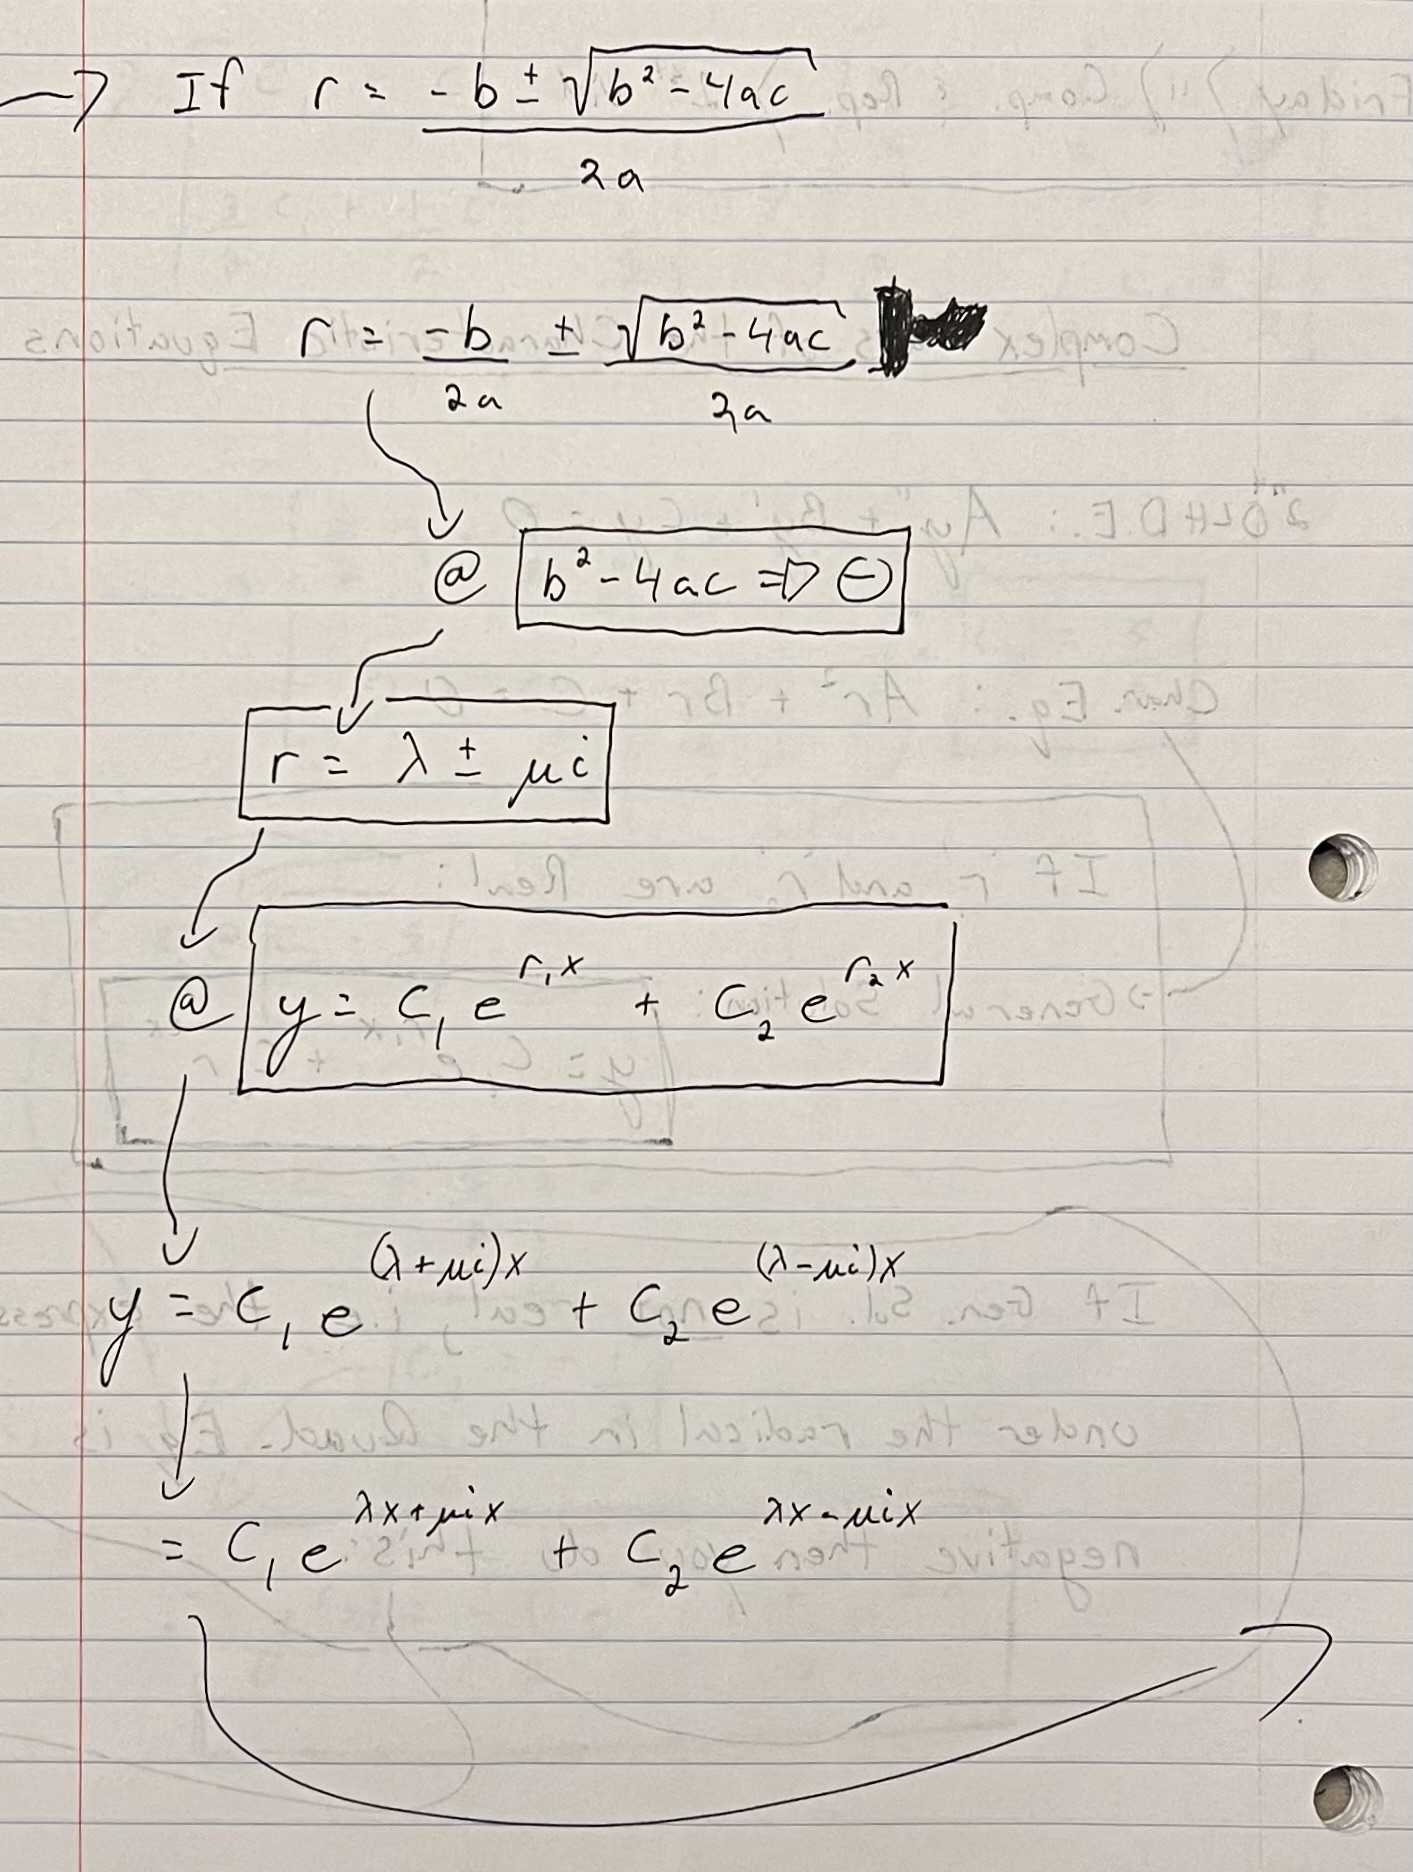 → If r = -b ± √(b² - 4ac) / 2a
r = -b/2a ± √(b² - 4ac)/2a
@ b² - 4ac ⇒ ⊖
r = λ ± μi
@ y = C₁ e^(r₁x) + C₂ e^(r₂x)
y = C₁ e^((λ+μi)x) + C₂ e^((λ-μi)x)
= C₁ e^(λx+μix) + C₂ e^(λx-μix)